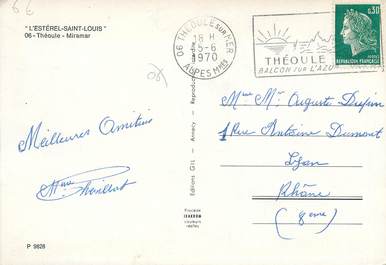 "L'ESTÉREL-SAINT-LOUIS"
06-Théoule - Miramar
06 THÉOULE SUR MER
18 H
5-6
1970
ALPES MMES
THÉOULE
BALCON SUR L'AZUR
0,30
RÉPUBLIQUE FRANÇAISE
Meilleures Amitiés
Mme
Mme Mr Auguste Dupin
1 Rue Antoine Dumont
Lyon
Rhône
(8eme)
Editions GIL - Annecy - Reproduction interdite
Procédé
couleurs
réelles
P 9826